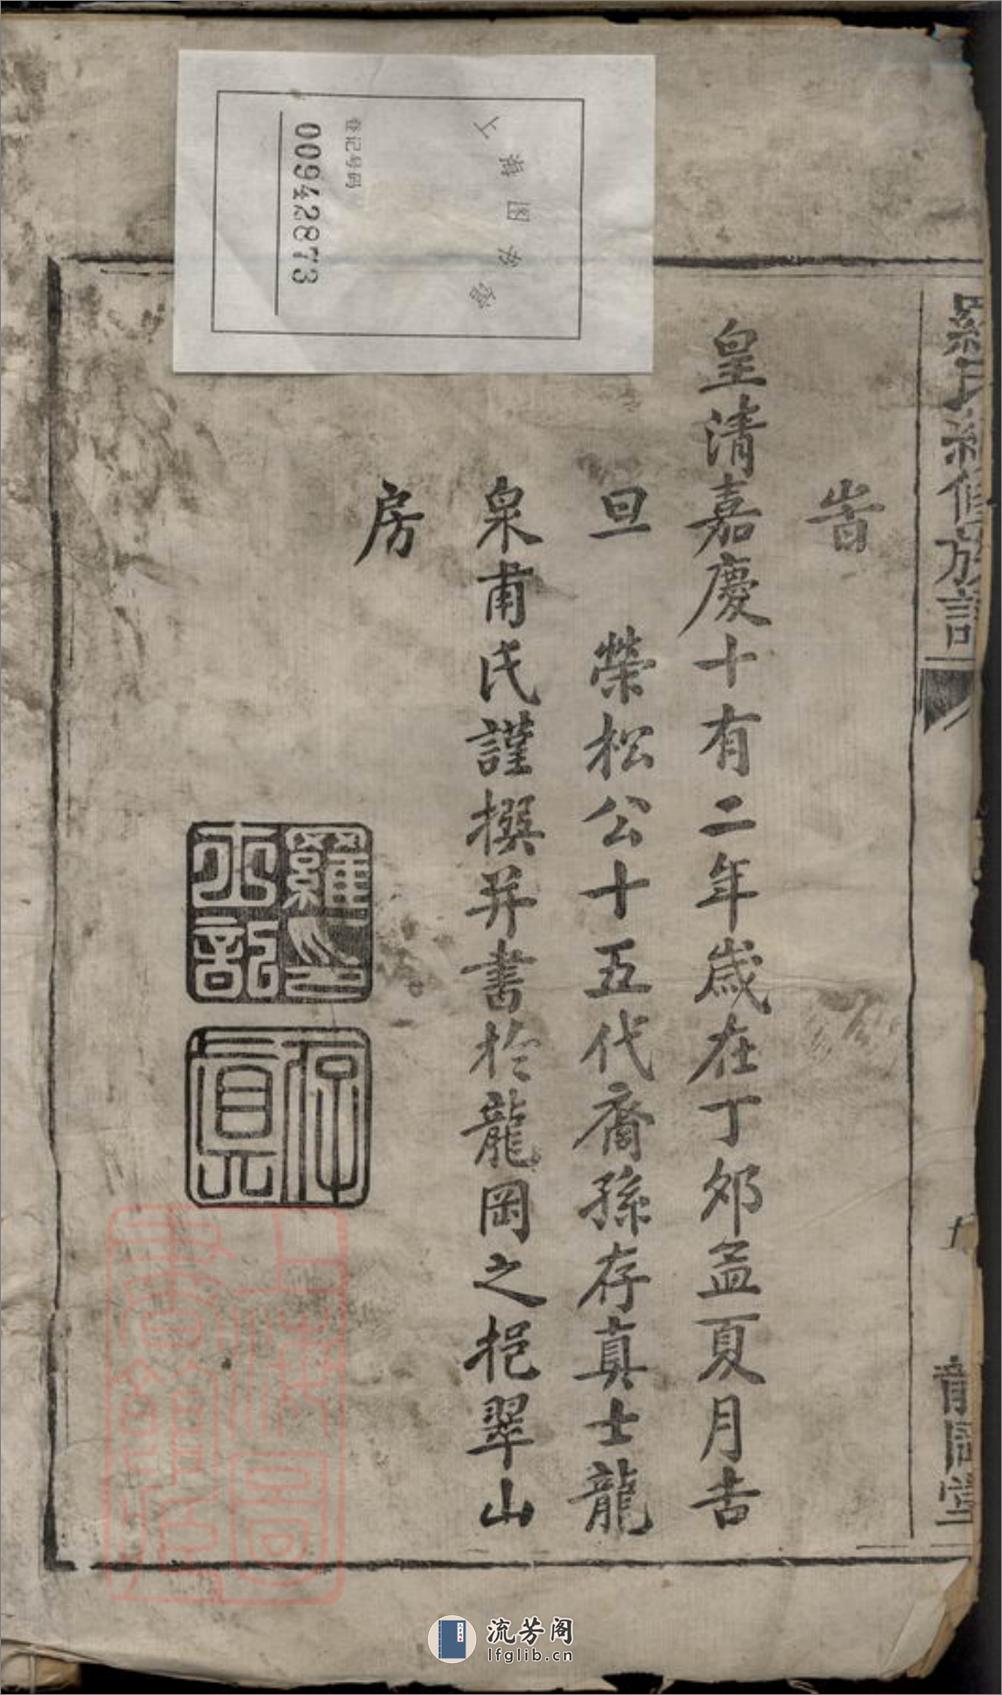 旹
皇清嘉慶十有二年歲在丁夘孟夏月吉
旦　榮松公十五代裔孫存真士龍
泉甫氏謹撰并書於龍岡之挹翠山
房
羅氏續修族譜
龍岡堂
羅印
士龍
存真
上海图书馆
登记号码
00942873
上海圖書館藏
流芳阁
lfglib.cn